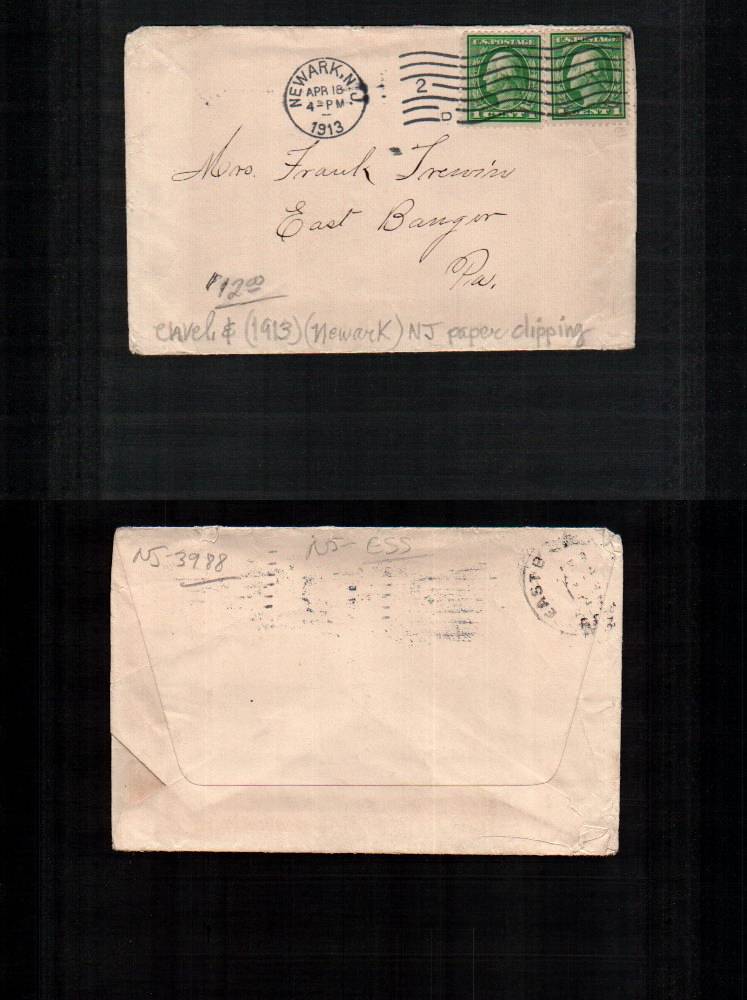 NEWARK, N.J.
APR 18
4 PM
1913
2
D
U.S. POSTAGE
1 CENT 1
U.S. POSTAGE
CENT
Mrs. Frank Trewin
East Bangor
Pa.
$12.00
envel. & (1913) (Newark) NJ paper clipping
NJ-3988
NJ- ESS
EAST B